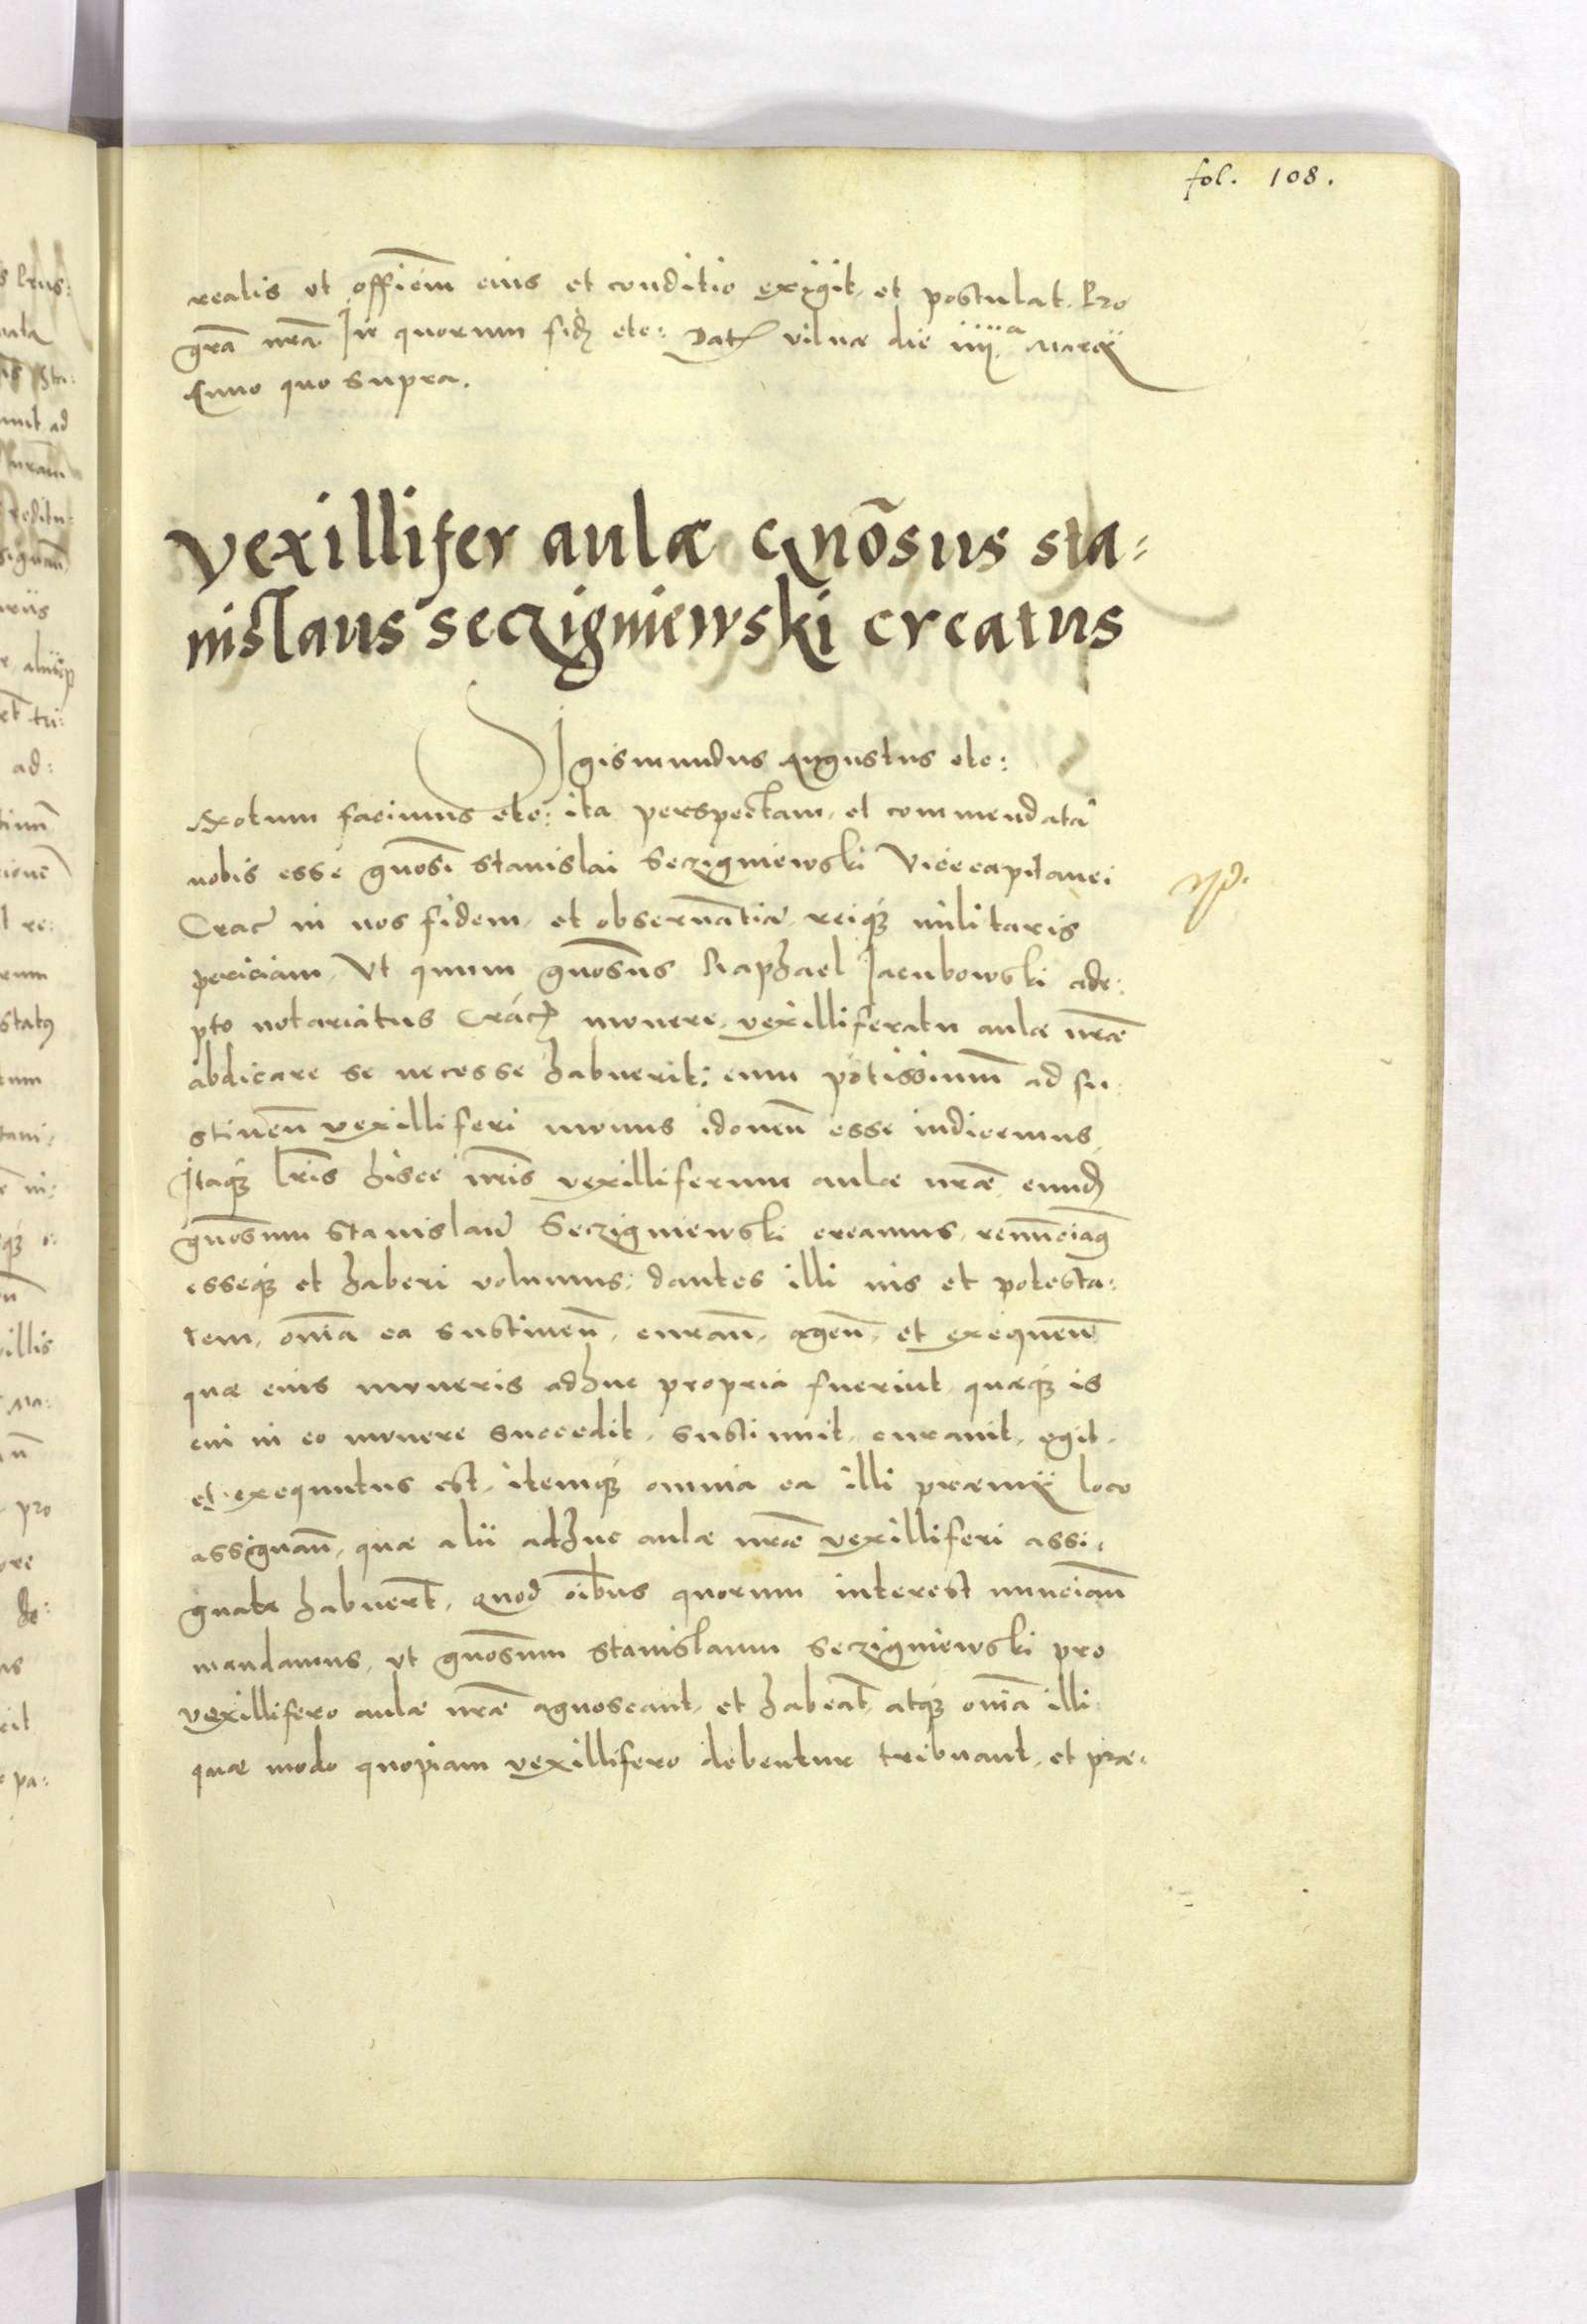 fol. 108.
realis ut offiëm eius et conditio exigit, et postulat. Pro
grã nrã. In quorum fidẽ etc: Dat Vilnæ die iiijª Marcij
Anno quo supra.
Vexillifer aulæ gnõsus sta:
nislaus seczigniewski creatus
Sigismundus Augustus etc:
Notum facimus etc: ita perspectam, et commendatã
nobis esse gnosi Stanislai Seczigniewski Vicecapitanei
Crac in nos fidem, et obseruãtiã, reiq; militaris
periciam, Ut quum gnosus Raphael Jacubowski ade:
pto notariatus Crac munere, vexilliferatu aulæ nræ
abdicare se necesse habuerit: eum potissimũ ad su:
stinen vexilliferi munus idoneũ esse iudicemus,
Itaq; lris hisce nris vexilliferum aulæ nræ eundẽ
gnosum Stanislaũ Seczigniewski creamus, renunciaq
esseq; et haberi volumus: dantes illi ius et potesta:
tem, onia ea sustinen, curan, agen, et exequen
quæ eius muneris adhuc propria fuerint, quæq; is
cui in eo munere succedit, sustinuit, curauit, egit,
et exequutus est, itemq; omnia ea illi præmij loco
assignan, quæ alii adhuc aulæ nræ vexilliferi assi:
gnata habuert, Quod oibus quorum interest nuncian
mandamus, ut gnosum Stanislaum Seczigniewski pro
vexillifero aulæ nræ agnoscant, et habeãt, atq; onia illi
quæ modo quopiam vexillifero debentur tribuant, et præ: